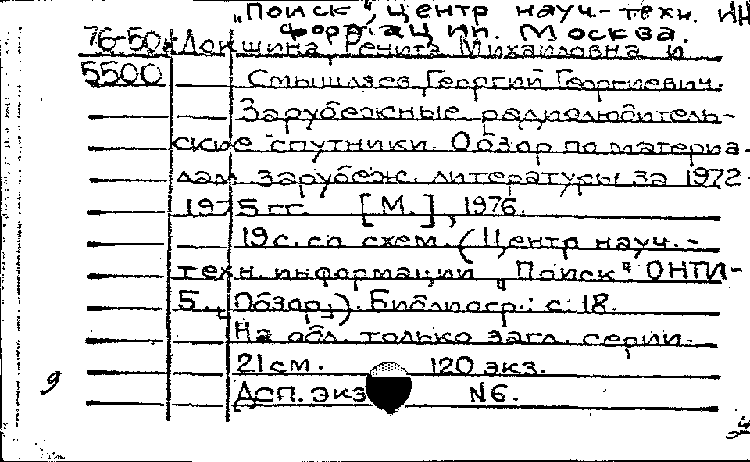 "Поиск", центр науч.-техн. ин
формации. Москва.
76-50 Локшина, Ренита Михайловна и
5500 Смышляев Георгий Георгиевич.
Зарубежные радиолюбитель-
ские спутники. Обзор по материа-
лам зарубеж. литературы за 1972-
1975 гг. [М.], 1976.
19 с. со схем. (Центр науч.-
техн. информации "Поиск" ОНТИ-
5. [Обзор]). Библиогр.: с. 18.
На обл. только загл. серии.
21 см. 120 экз.
9 Дсп. экз N6.